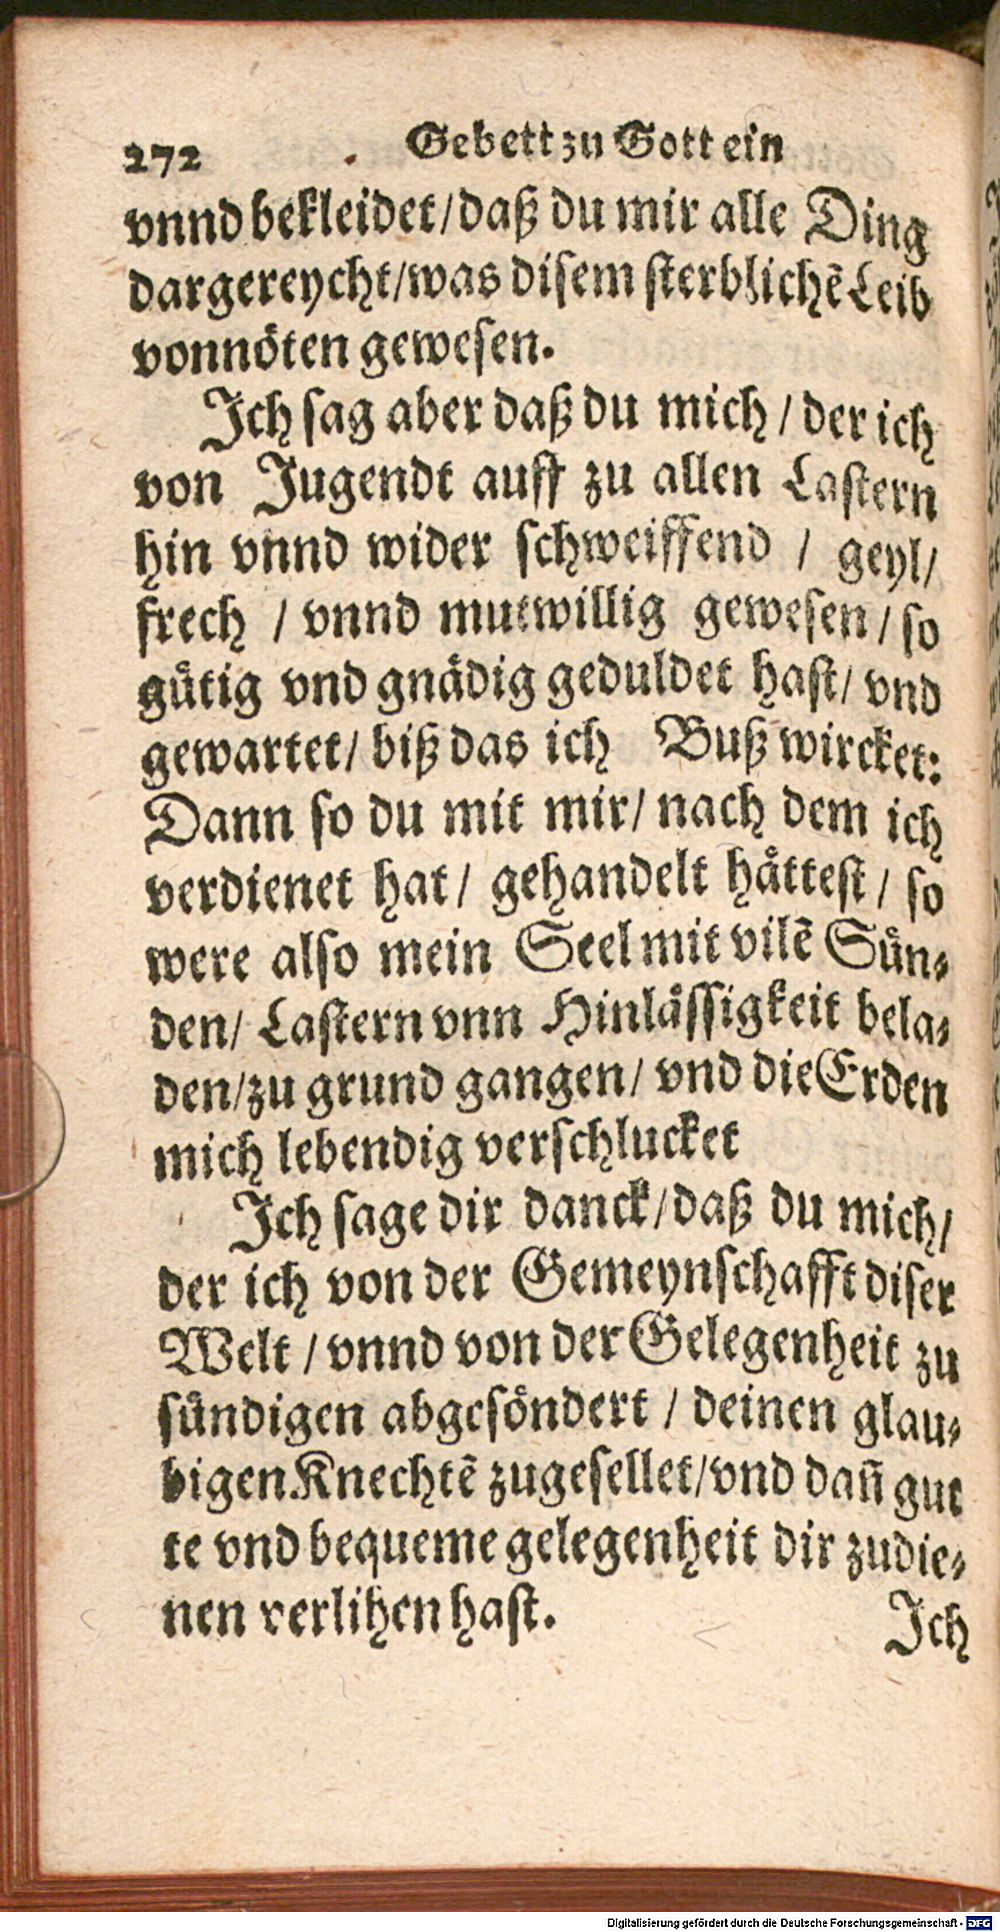 272 Gebett zu Gott ein
vnnd bekleidet/daß du mir alle Ding
dargereycht/was disem sterblichẽ Leib
vonnöten gewesen.
Ich sag aber daß du mich / der ich
von Jugendt auff zu allen Lastern
hin vnnd wider schweiffend / geyl/
frech / vnnd mutwillig gewesen / so
gütig vnd gnädig geduldet hast/ vnd
gewartet/ biß das ich Buß wircket:
Dann so du mit mir/ nach dem ich
verdienet hat/ gehandelt hättest / so
were also mein Seel mit vilẽ Sün-
den/ Lastern vnn Hinlässigkeit bela-
den/zu grund gangen/ vnd die Erden
mich lebendig verschlucket
Ich sage dir danck/daß du mich/
der ich von der Gemeynschafft diser
Welt / vnnd von der Gelegenheit zu
sündigen abgesöndert / deinen glau-
bigen Knechtẽ zugesellet/vnd dañ gut
te vnd bequeme gelegenheit dir zudie-
nen verlihen hast.
Ich
Digitalisierung gefördert durch die Deutsche Forschungsgemeinschaft - DFG